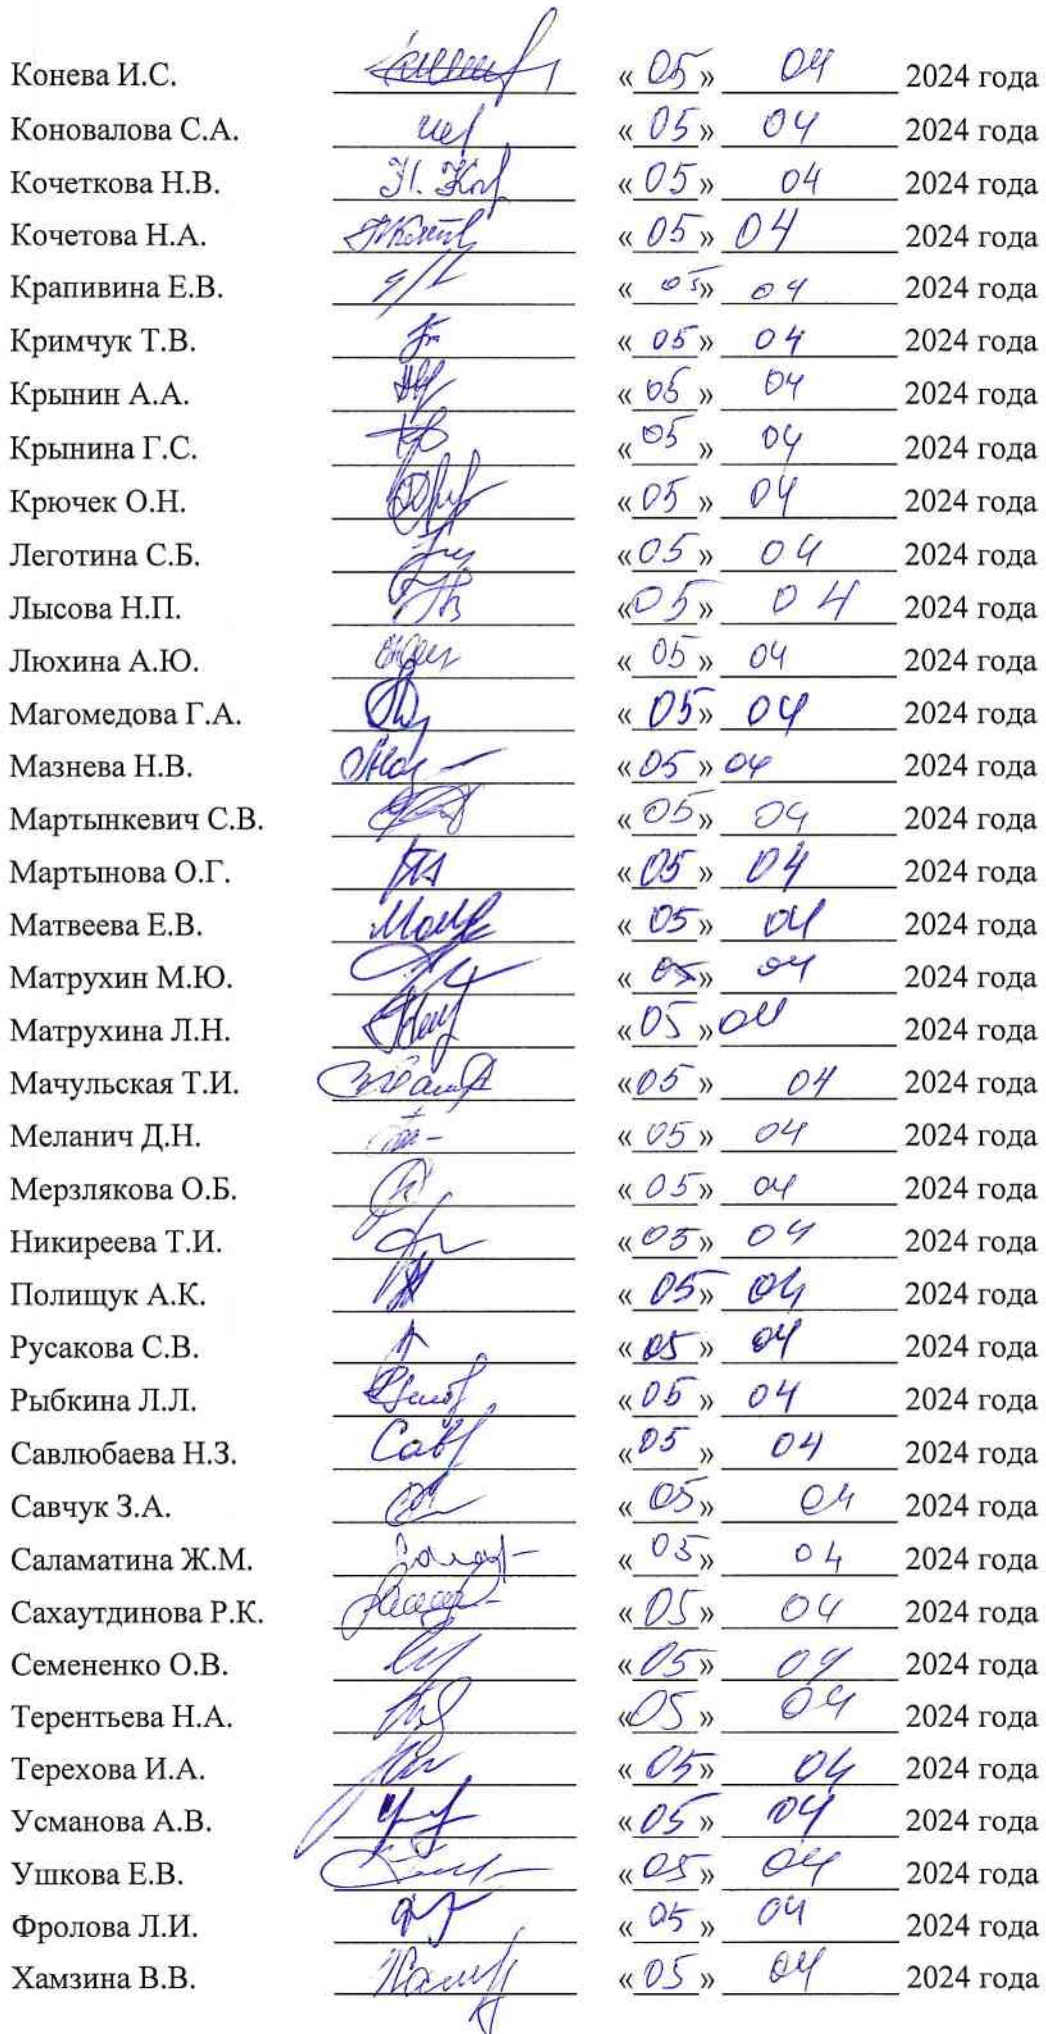 Конева И.С. «05» 04 2024 года
Коновалова С.А. «05» 04 2024 года
Кочеткова Н.В. «05» 04 2024 года
Кочетова Н.А. «05» 04 2024 года
Крапивина Е.В. «05» 04 2024 года
Кримчук Т.В. «05» 04 2024 года
Крынин А.А. «05» 04 2024 года
Крынина Г.С. «05» 04 2024 года
Крючек О.Н. «05» 04 2024 года
Леготина С.Б. «05» 04 2024 года
Лысова Н.П. «05» 04 2024 года
Люхина А.Ю. «05» 04 2024 года
Магомедова Г.А. «05» 04 2024 года
Мазнева Н.В. «05» 04 2024 года
Мартынкевич С.В. «05» 04 2024 года
Мартынова О.Г. «05» 04 2024 года
Матвеева Е.В. «05» 04 2024 года
Матрухин М.Ю. «05» 04 2024 года
Матрухина Л.Н. «05» 04 2024 года
Мачульская Т.И. «05» 04 2024 года
Меланич Д.Н. «05» 04 2024 года
Мерзлякова О.Б. «05» 04 2024 года
Никиреева Т.И. «05» 04 2024 года
Полищук А.К. «05» 04 2024 года
Русакова С.В. «05» 04 2024 года
Рыбкина Л.Л. «05» 04 2024 года
Савлюбаева Н.З. «05» 04 2024 года
Савчук З.А. «05» 04 2024 года
Саламатина Ж.М. «05» 04 2024 года
Сахаутдинова Р.К. «05» 04 2024 года
Семененко О.В. «05» 04 2024 года
Терентьева Н.А. «05» 04 2024 года
Терехова И.А. «05» 04 2024 года
Усманова А.В. «05» 04 2024 года
Ушкова Е.В. «05» 04 2024 года
Фролова Л.И. «05» 04 2024 года
Хамзина В.В. «05» 04 2024 года